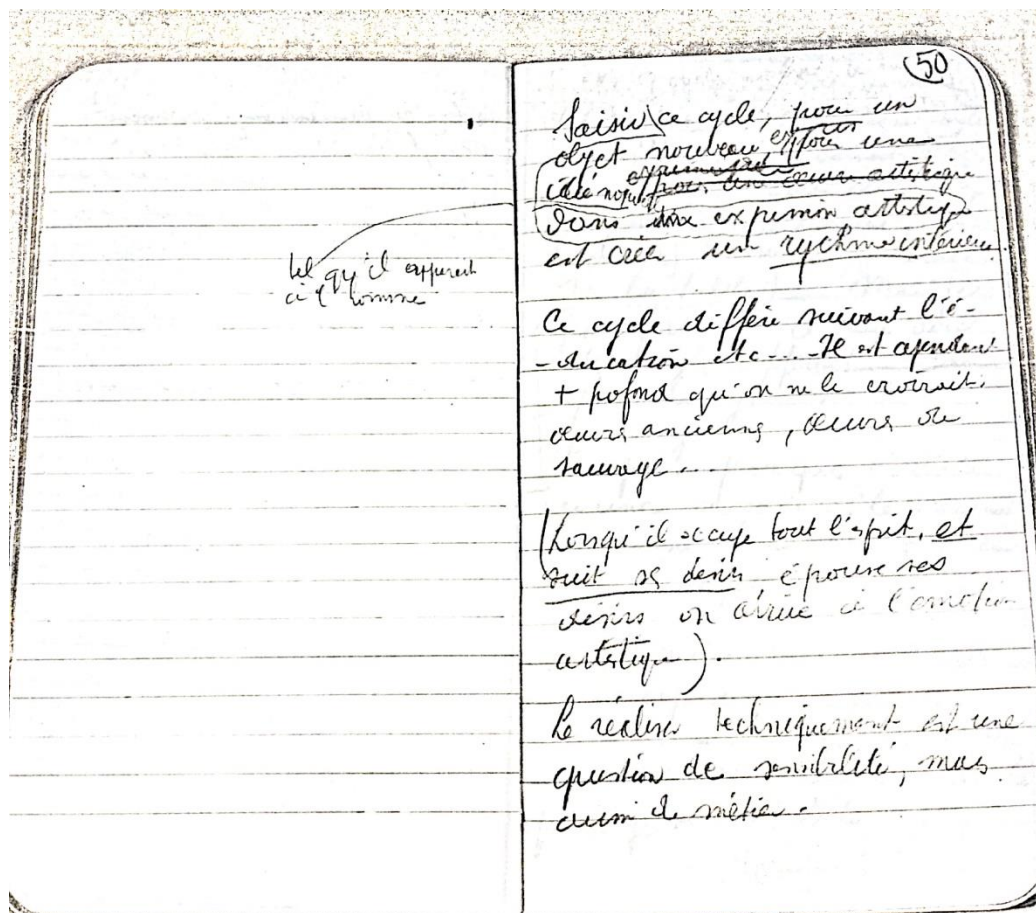 tel qu'il apparait
à l'homme
50
Saisir ce cycle, pour un
objet nouveau et pour une
idée
dans une expression artistique
est créer un rythme intérieur.
Ce cycle diffère suivant l'é-
-ducation etc.... Il est cependant
+ pofond qu'on ne le croirait.
œuvres anciennes, œuvres de
sauvage...
(Lorsqu'il occupe tout l'esprit, et
suit ses désirs épouse ses
désirs on arrive à l'émotion
artistique).
Le réaliser techniquement est une
question de sensibilité, mais
aussi de métier.